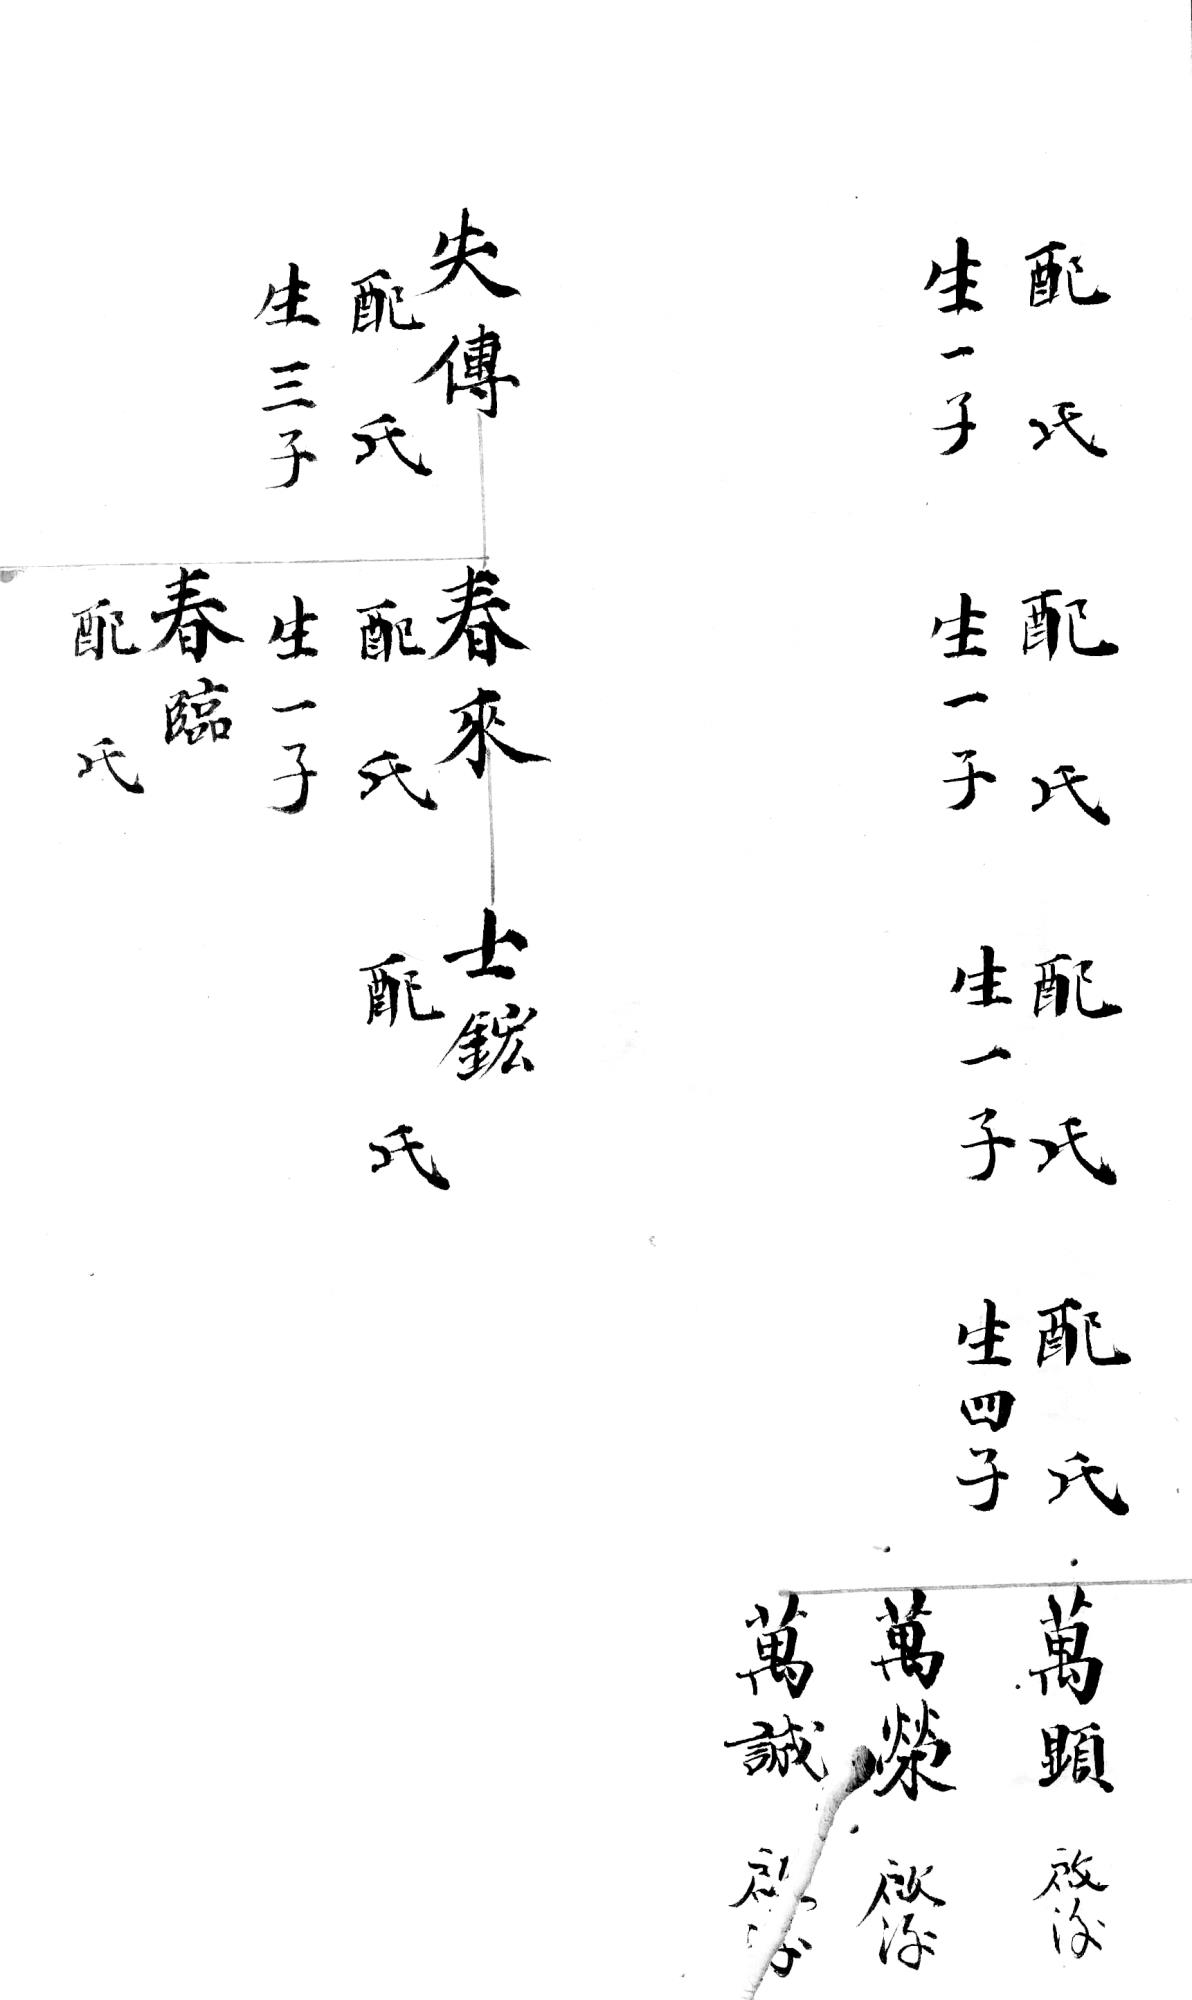 配 氏
生一子
配 氏
生一子
配 氏
生一子
配 氏
生四子
萬顕 啟後
萬榮 啟後
萬誠
失傳
配 氏
生三子
春來
配 氏
生一子
春臨
配 氏
士鋐
配 氏